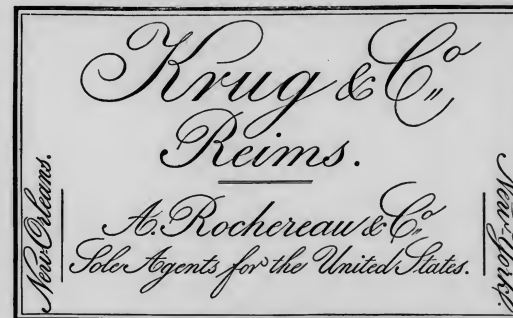 Krug & Co,,
Reims.
A. Rochereau & Co.
Sole Agents for the United States.
New-Orleans.
New-York.